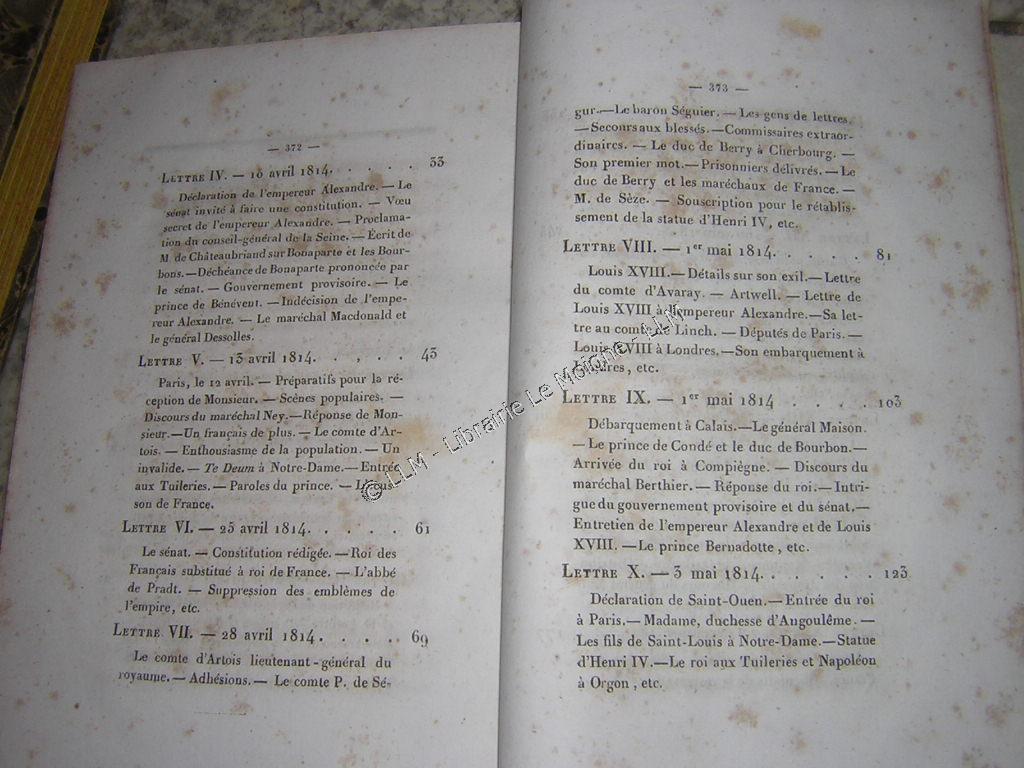 — 372 —
LETTRE IV. — 10 avril 1814. . . . . 33
Déclaration de l'empereur Alexandre. — Le
sénat invité à faire une constitution. — Vœu
secret de l'empereur Alexandre. — Proclama-
tion du conseil-général de la Seine. — Écrit de
M. de Châteaubriand sur Bonaparte et les Bour-
bons. — Déchéance de Bonaparte prononcée par
le sénat. — Gouvernement provisoire. — Le
prince de Bénévent. — Indécision de l'empe-
reur Alexandre. — Le maréchal Macdonald et
le général Dessolles.
LETTRE V. — 13 avril 1814. . , . . 43
Paris, le 12 avril. — Préparatifs pour la ré-
ception de Monsieur. — Scènes populaires. —
Discours du maréchal Ney. — Réponse de Mon-
sieur. — Un français de plus. — Le comte d'Ar-
tois. — Enthousiasme de la population. — Un
invalide. — Te Deum à Notre-Dame. — Entrée
aux Tuileries. — Paroles du prince. —
son de France.
LETTRE VI. — 25 avril 1814. . . . . 61
Le sénat. — Constitution rédigée. — Roi des
Français substitué à roi de France. — L'abbé
de Pradt. — Suppression des emblèmes de
l'empire, etc.
LETTRE VII. — 28 avril 1814. . . . . 69
Le comte d'Artois lieutenant-général du
royaume. — Adhésions. — Le comte P. de Sé-
— 373 —
gur. — Le baron Séguier. — Les gens de lettres.
— Secours aux blessés. — Commissaires extraor-
dinaires. — Le duc de Berry à Cherbourg. —
Son premier mot. — Prisonniers délivrés. — Le
duc de Berry et les maréchaux de France. —
M. de Sèze. — Souscription pour le rétablis-
sement de la statue d'Henri IV, etc.
LETTRE VIII. — 1er mai 1814. . . . . 81
Louis XVIII. — Détails sur son exil. — Lettre
du comte d'Avaray. — Artwell. — Lettre de
Louis XVIII à l'empereur Alexandre. — Sa let-
tre au comte de Linch. — Députés de Paris. —
Louis XVIII à Londres. — Son embarquement à
Douvres, etc.
LETTRE IX. — 1er mai 1814 . . . . 103
Débarquement à Calais. — Le général Maison.
— Le prince de Condé et le duc de Bourbon. —
Arrivée du roi à Compiègne. — Discours du
maréchal Berthier. — Réponse du roi. — Intri-
gue du gouvernement provisoire et du sénat. —
Entretien de l'empereur Alexandre et de Louis
XVIII. — Le prince Bernadotte, etc.
LETTRE X. — 3 mai 1814. . . . . . 123
Déclaration de Saint-Ouen. — Entrée du roi
à Paris. — Madame, duchesse d'Angoulême. —
Les fils de Saint-Louis à Notre-Dame. — Statue
d'Henri IV. — Le roi aux Tuileries et Napoléon
à Orgon, etc.
© LLM - Librairie Le Moigne - LLM